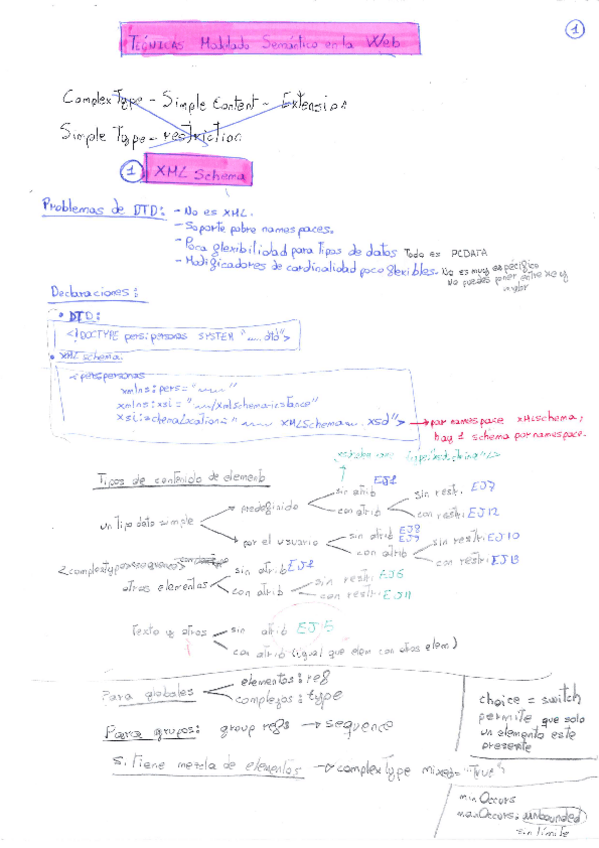 1
TÉCNICAS Modelado Semántico en la Web
Complex Type - Simple Content - Extension
Simple Type - restriction
1 XML Schema
Problemas de DTD: - No es XML.
- Soporte pobre namespaces.
- Poca flexibilidad para tipos de datos Todo es PCDATA
- Modificadores de cardinalidad poco flexibles. No es muy específico
No puedes poner entre xe y
Declaraciones:
• DTD:
<!DOCTYPE pers:personas SYSTEM "......dtd">
• XML schema:
<pers:personas
xmlns:pers="
xmlns:xsi="
xsi:schemaLocation="
.xsd"> → por namespace XMLschema,
hay 1 schema por namespace.
Tipos de contenido de elemento
un tipo dato simple
predefinido
sin atrib EJ1
con atrib
sin restr. EJ7
con restr. EJ12
por el usuario
sin atrib EJ8 EJ9
con atrib
sin restr. EJ10
con restr. EJ13
otros elementos
sin atrib EJ2
con atrib
sin restr. EJ6
con restr. EJ11
texto y otros
sin atrib EJ5
con atrib (igual que elem con otros elem)
Para globales
elementos: ref
complejos: type
Para grupos: group refs → sequence
Si tiene mezcla de elementos → complextype mixed="True"
choice = switch
permite que solo
un elemento este
presente
minOccurs
maxOccurs: unbounded
sin límite